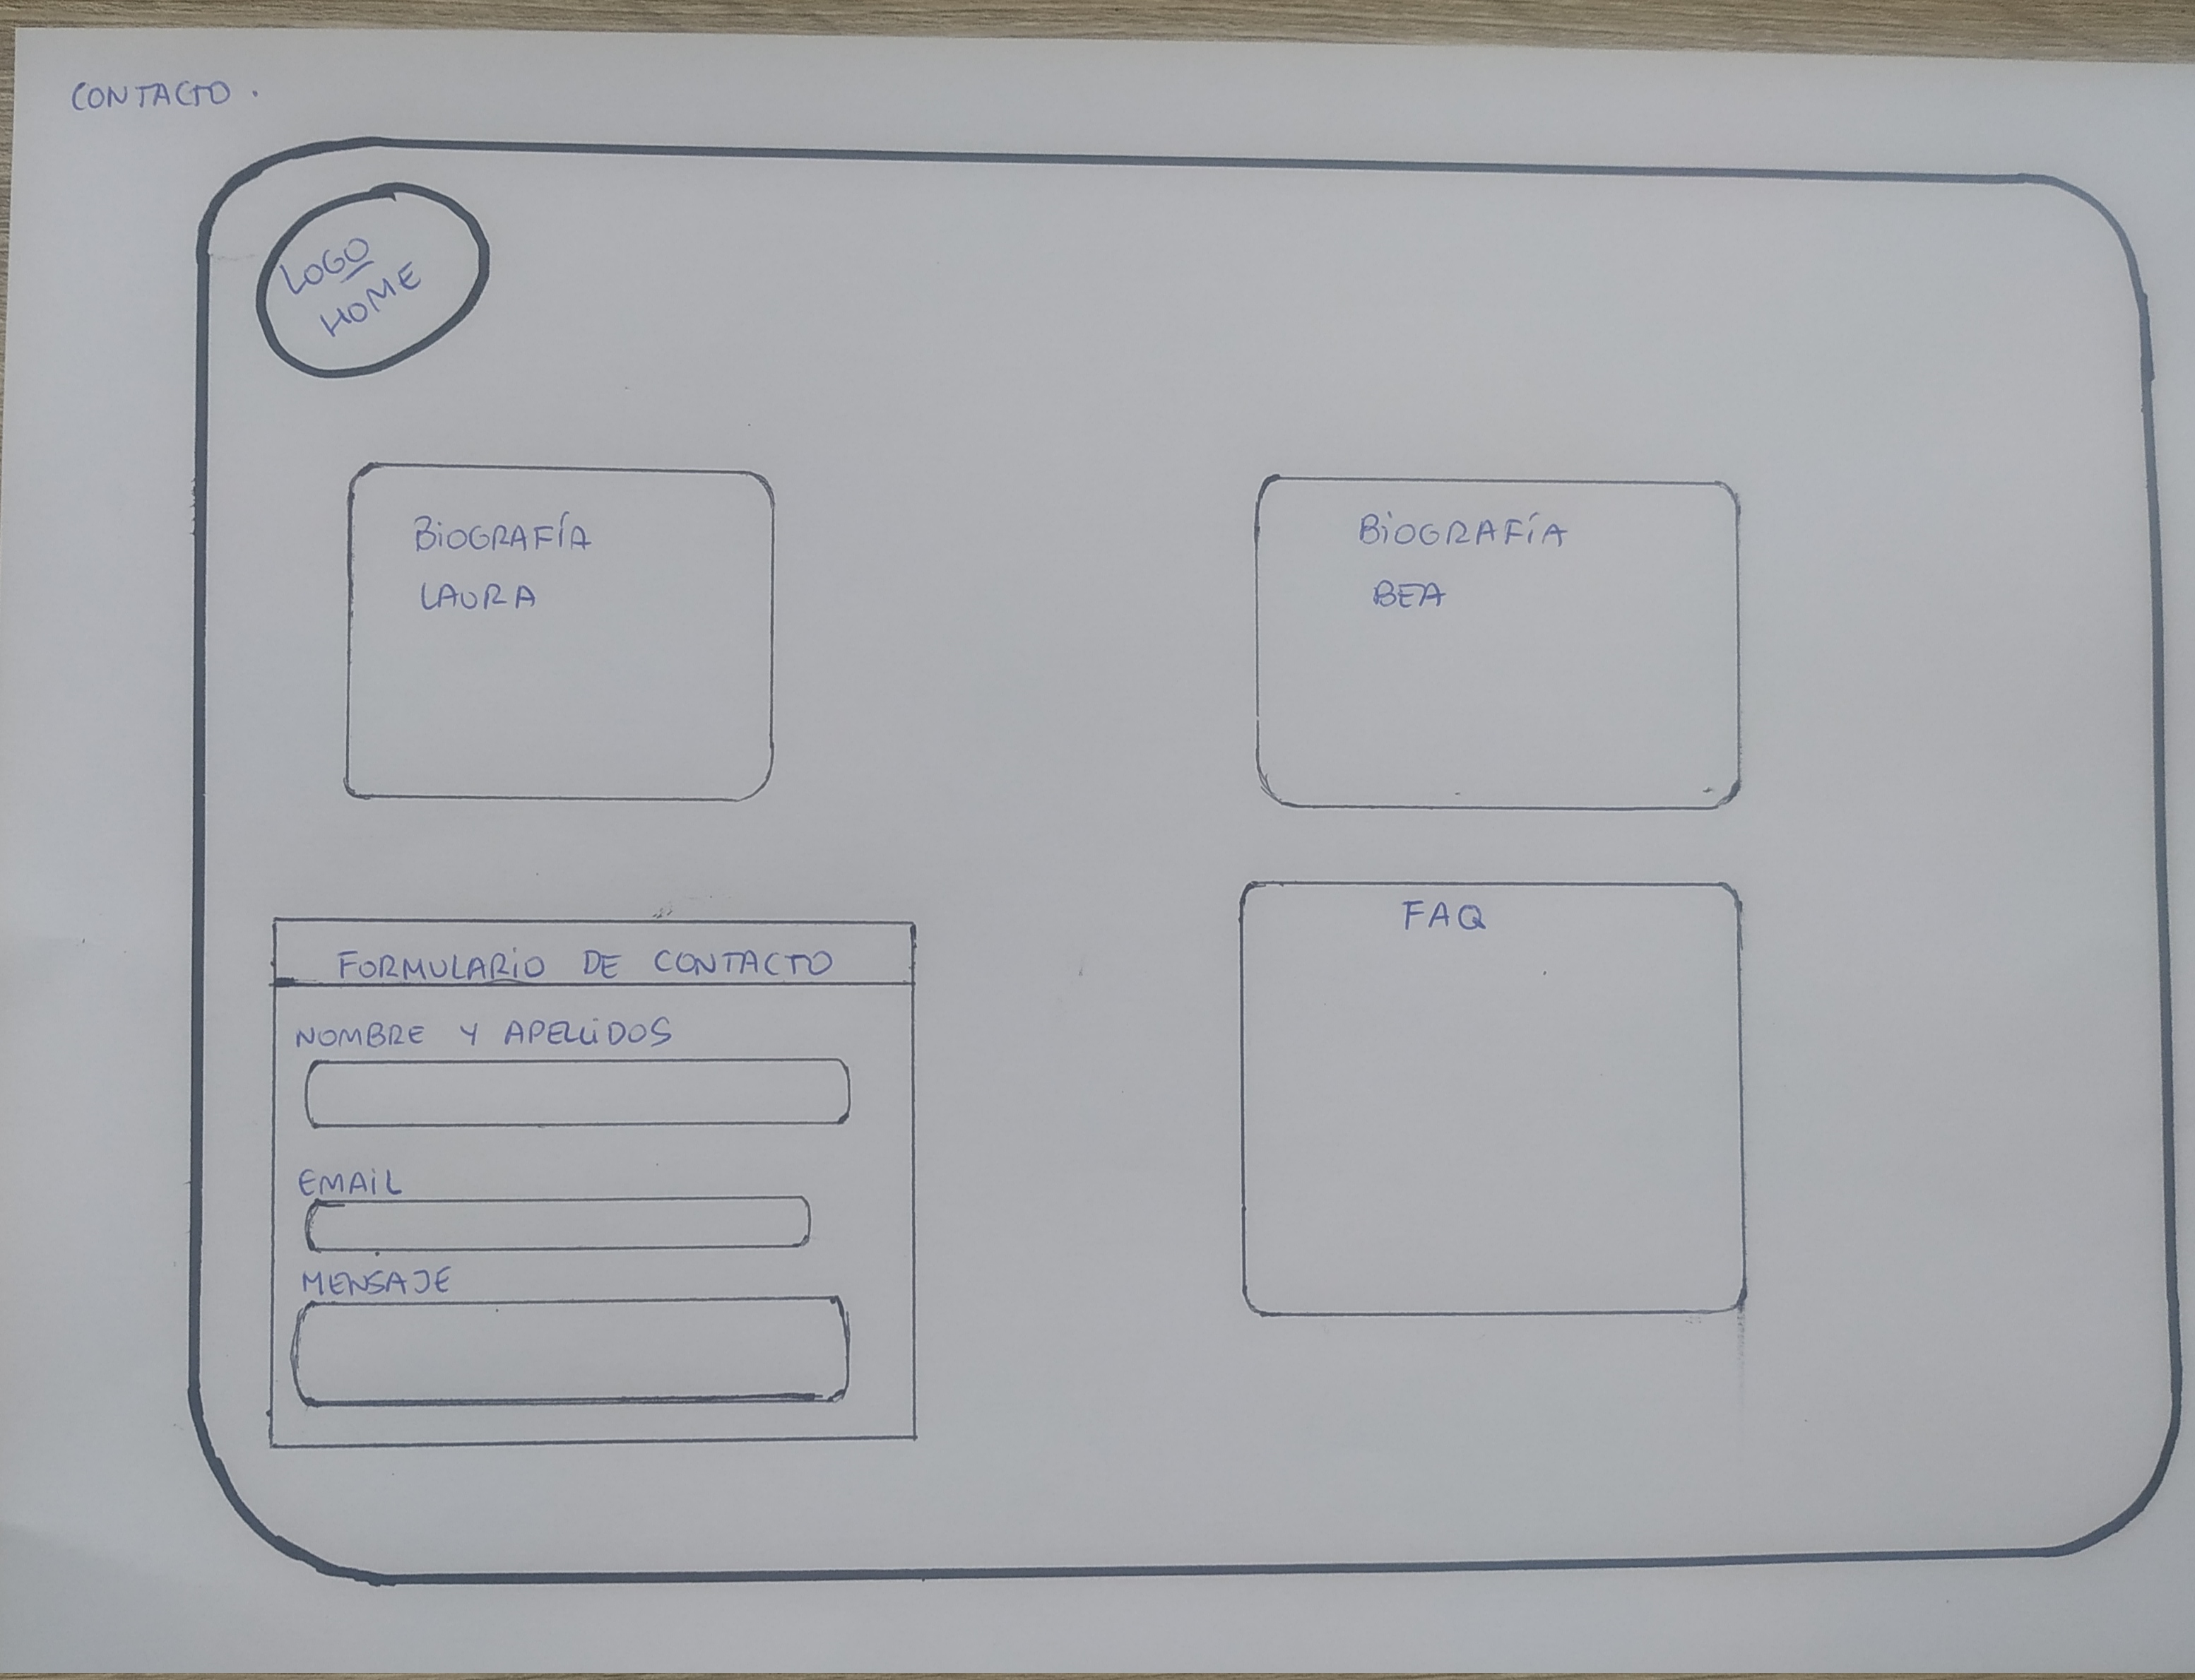 CONTACTO.
LOGO
HOME
BIOGRAFÍA
LAURA
BIOGRAFÍA
BEA
FORMULARIO DE CONTACTO
NOMBRE Y APELLIDOS
EMAIL
MENSAJE
FAQ